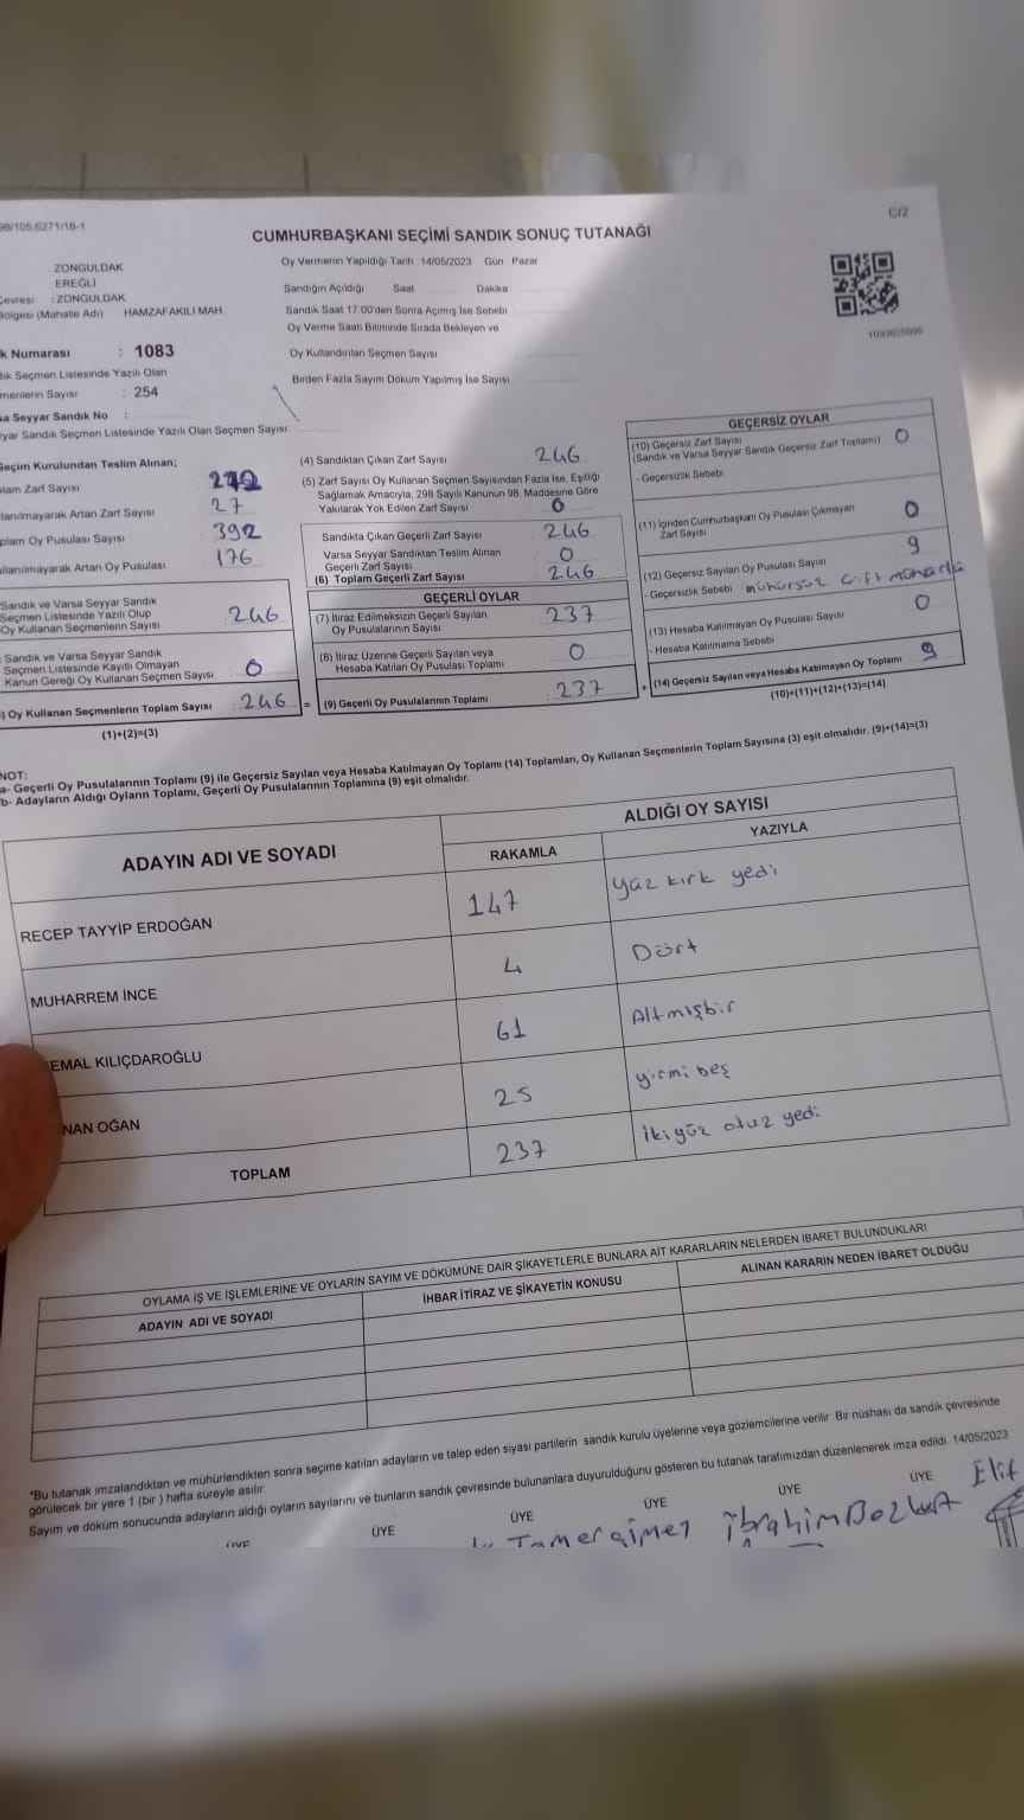 CUMHURBAŞKANI SEÇİMİ SANDIK SONUÇ TUTANAĞI
C/2
ZONGULDAK
EREĞLİ
: ZONGULDAK
(Mahalle Adı) HAMZAFAKILI MAH.
Numarası : 1083
Seçmen Listesinde Yazılı Olan
Sayısı : 254
Seyyar Sandık No :
Sandık Seçmen Listesinde Yazılı Olan Seçmen Sayısı
Oy Vermenin Yapıldığı Tarih 14/05/2023 Gün Pazar
Sandığın Açıldığı Saat Dakika
Sandık Saat 17:00'den Sonra Açılmış İse Sebebi
Oy Verme Saati Bitiminde Sırada Bekleyen ve
Oy Kullandırılan Seçmen Sayısı
Birden Fazla Sayım Döküm Yapılmış İse Sayısı
Seçim Kurulundan Teslim Alınan;
Zarf Sayısı
Artan Zarf Sayısı 27
Oy Pusulası Sayısı 392
Artan Oy Pusulası 176
Sandık ve Varsa Seyyar Sandık
Seçmen Listesinde Yazılı Olup
Oy Kullanan Seçmenlerin Sayısı 246
Sandık ve Varsa Seyyar Sandık
Seçmen Listesinde Kayıtlı Olmayan
Kanun Gereği Oy Kullanan Seçmen Sayısı 0
Oy Kullanan Seçmenlerin Toplam Sayısı : 246
(1)+(2)=(3)
(4) Sandıktan Çıkan Zarf Sayısı 246
(5) Zarf Sayısı Oy Kullanan Seçmen Sayısından Fazla İse, Eşitliği
Sağlamak Amacıyla, 298 Sayılı Kanunun 98. Maddesine Göre
Yakılarak Yok Edilen Zarf Sayısı 0
Sandıkta Çıkan Geçerli Zarf Sayısı 246
Varsa Seyyar Sandıktan Teslim Alınan
Geçerli Zarf Sayısı 0
(6) Toplam Geçerli Zarf Sayısı 246
GEÇERLİ OYLAR
(7) İtiraz Edilmeksizin Geçerli Sayılan
Oy Pusulalarının Sayısı 237
(8) İtiraz Üzerine Geçerli Sayılan veya
Hesaba Katılan Oy Pusulası Toplamı 0
= (9) Geçerli Oy Pusulalarının Toplamı : 237
GEÇERSİZ OYLAR
(10) Geçersiz Zarf Sayısı
(Sandık ve Varsa Seyyar Sandık Geçersiz Zarf Toplamı) 0
- Geçersizlik Sebebi
(11) İçinden Cumhurbaşkanı Oy Pusulası Çıkmayan
Zarf Sayısı 0
(12) Geçersiz Sayılan Oy Pusulası Sayısı 9
- Geçersizlik Sebebi mühürsüz çift mühürlü
(13) Hesaba Katılmayan Oy Pusulası Sayısı 0
- Hesaba Katılmama Sebebi
+ (14) Geçersiz Sayılan veya Hesaba Katılmayan Oy Toplamı 9
(10)+(11)+(12)+(13)=(14)
NOT:
a- Geçerli Oy Pusulalarının Toplamı (9) ile Geçersiz Sayılan veya Hesaba Katılmayan Oy Toplamı (14) Toplamları, Oy Kullanan Seçmenlerin Toplam Sayısına (3) eşit olmalıdır. (9)+(14)=(3)
b- Adayların Aldığı Oyların Toplamı, Geçerli Oy Pusulalarının Toplamına (9) eşit olmalıdır.
ADAYIN ADI VE SOYADI
ALDIĞI OY SAYISI
RAKAMLA YAZIYLA
RECEP TAYYİP ERDOĞAN 147 yüz kırk yedi
MUHARREM İNCE 4 Dört
EMAL KILIÇDAROĞLU 61 Altmışbir
NAN OĞAN 25 yirmi beş
TOPLAM 237 ikiyüz otuz yedi
OYLAMA İŞ VE İŞLEMLERİNE VE OYLARIN SAYIM VE DÖKÜMÜNE DAİR ŞİKAYETLERLE BUNLARA AİT KARARLARIN NELERDEN İBARET BULUNDUKLARI
ADAYIN ADI VE SOYADI İHBAR İTİRAZ VE ŞİKAYETİN KONUSU ALINAN KARARIN NEDEN İBARET OLDUĞU
*Bu tutanak imzalandıktan ve mühürlendikten sonra seçime katılan adayların ve talep eden siyasi partilerin sandık kurulu üyelerine veya gözlemcilerine verilir. Bir nüshası da sandık çevresinde
görülecek bir yere 1 (bir) hafta süreyle asılır.
Sayım ve döküm sonucunda adayların aldığı oyların sayılarını ve bunların sandık çevresinde bulunanlara duyurulduğunu gösteren bu tutanak tarafımızdan düzenlenerek imza edildi. 14/05/2023
ÜYE ÜYE ÜYE ÜYE ÜYE ÜYE
İbrahim Bozkurt Elif